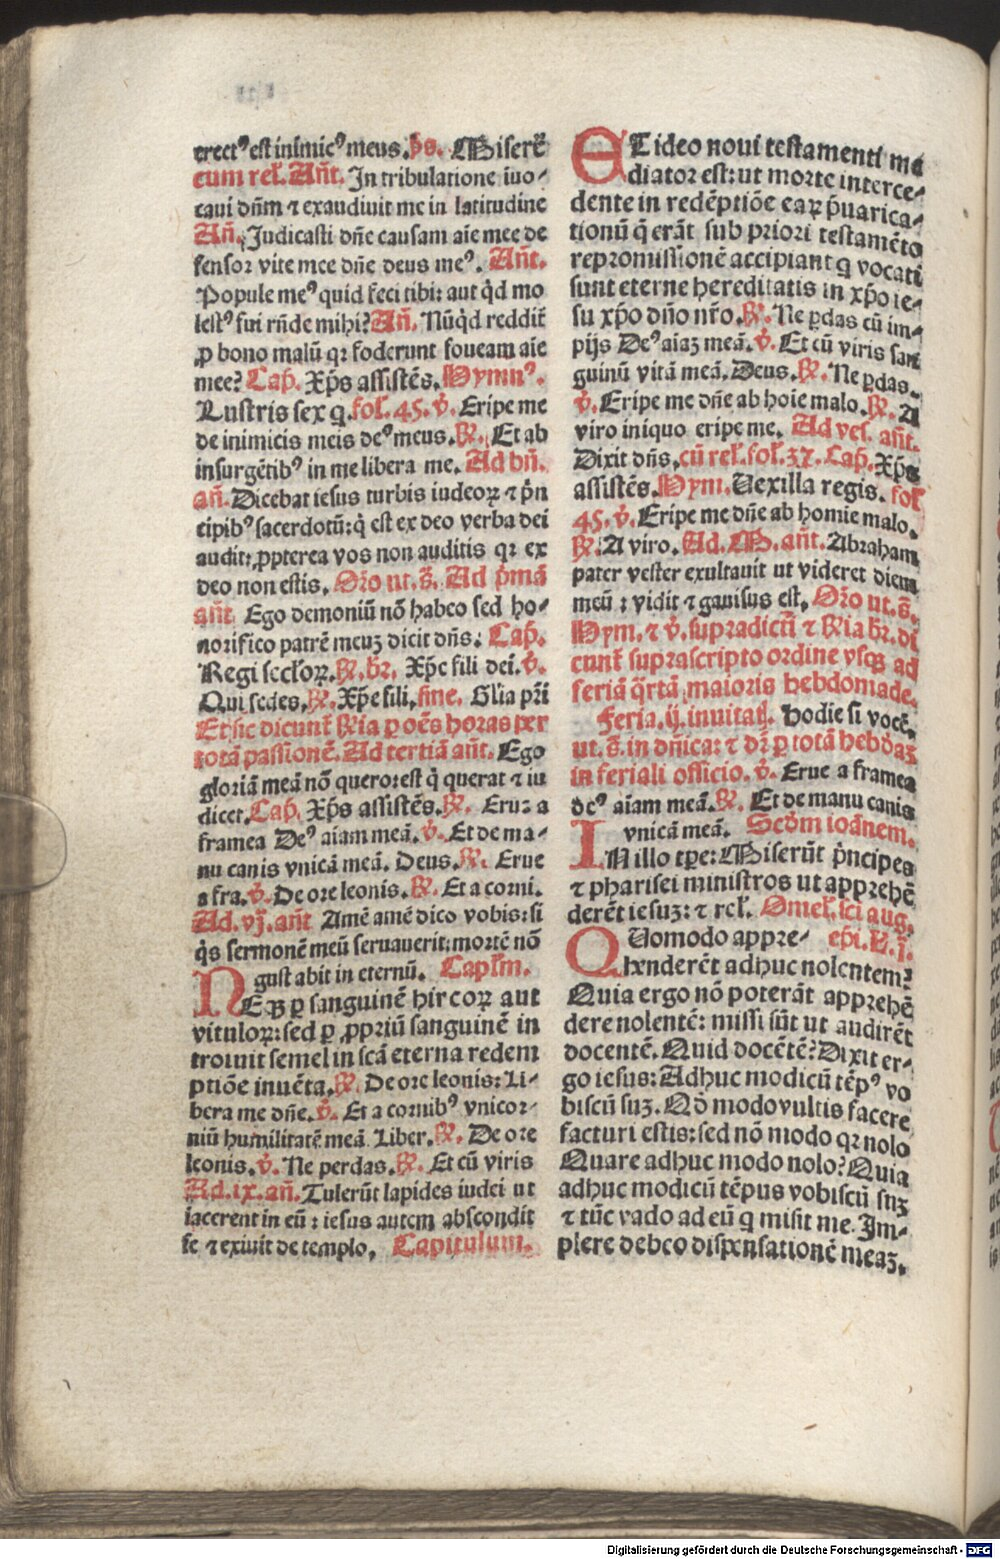 erectꝰ est inimicꝰ meus. p̄s. Miserē
cum rel̄. Añt. In tribulatione īuo-
caui dñm ⁊ exaudiuit me in latitudine
Añ. Judicasti dñe causam aīe mee de
fensor vite mee dñe deus meꝰ. Añt.
Popule meꝰ quid feci tibi: aut q̇d mo
lestꝰ fui rñde mihi? Añ. Nūq̇d reddit̄
ꝓ bono malū qꝛ foderunt foueam aīe
mee? Cap̄. Xp̄s assistēs. Hymnꝰ.
Lustris sex q. fol̄. 45. v̄. Eripe me
de inimicis meis deꝰ meus. ℟. Et ab
insurgētibꝰ in me libera me. Ad bñ.
añ. Dicebat iesus turbis iudeoꝝ ⁊ p̄n
cipibꝰ sacerdotū: q̇ est ex deo verba dei
audit: ꝓpterea vos non auditis qꝛ ex
deo non estis. Oro ut. s̄. Ad p̄mā
añt Ego demoniū nō habeo sed ho-
norifico patrē meuꝫ dicit dñs. Cap̄.
Regi secl̄oꝝ. ℟. br̄. Xp̄e fili dei. v̄.
Qui sedes. ℟. Xp̄e fili, sine. Gl̄ia pr̄i
Et sic dicunt̄ ℟ia ꝑ oēs horas per
totā passionē. Ad tertiā añt. Ego
gloriā meā nō quero: est q̇ querat ⁊ iu
dicet. Cap̄. Xp̄s assistēs. ℟. Erue a
framea Deꝰ aīam meā. v̄. Et de ma-
nu canis vnicā meā. Deus. ℟. Erue
a fra. v̄. De ore leonis. ℟. Et a corni.
Ad. vj. añt Amē amē dico vobis: si
q̇s sermonē meū seruauerit: mortē nō
gustabit in eternū. Capl̄m.
NEqꝫ ꝑ sanguinē hircoꝝ aut
vituloꝝ: sed ꝑ ꝓpriū sanguinē in
troiuit semel in scā eterna redem
ptiōe inuēta. ℟. De ore leonis: Li-
bera me dñe. v̄. Et a cornibꝰ vnicor-
niū humilitatē meā. Liber. ℟. De ore
leonis. v̄. Ne perdas. ℟. Et cū viris
Ad. ix. añ. Tulerūt lapides iudei ut
iacerent in eū: iesus autem abscondit
se ⁊ exiuit de templo. Capitulum.
ET ideo noui testamenti me
diator est: ut morte interce-
dente in redēptiōe eaꝝ p̄uarica-
tionū q̄ erāt sub priori testamēto
repromissionē accipiant q vocati
sunt eterne hereditatis in xp̄o ie-
su xp̄o dño nr̄o. ℟. Ne ꝑdas cū im-
pijs Deꝰ aīaꝫ meā. v̄. Et cū viris san
guinū vitā meā. Deus. ℟. Ne ꝑdas.
v̄. Eripe me dñe ab hoīe malo. ℟. A
viro iniquo eripe me. Ad ves. añt.
Dixit dñs. cū rel̄. fol̄. 37. Cap̄. Xp̄s
assistēs. Hym. Vexilla regis. fol̄
45. v̄. Eripe me dñe ab homie malo.
℟. A viro. Ad. M. añt. Abraham
pater vester exultauit ut videret diem
meū: vidit ⁊ gauisus est. Oro ut. s̄.
Hym. ⁊ v̄. supradicti ⁊ ℟ia br̄. di
cunt̄ suprascripto ordine vsqꝫ ad
feriā q̄rtā maioris hebdomade.
Feria. ij. inuitat̄. Hodie si vocē.
ut. s̄. in dñica: ⁊ dr̄ ꝑ totā hebdaꝫ
in feriali officio. v̄. Erue a framea
deꝰ aīam meā. ℟. Et de manu canis
vnicā meā. Scdm ioānem.
IN illo tp̄e: Miserūt p̄ncipes
⁊ pharisei ministros ut apprehē
derēt iesuꝫ: ⁊ rel̄. Omel̄. sci aug.
QUomodo appre- ep̄i. L̄. j.
henderēt adhuc nolentem?
Quia ergo nō poterāt apprehē
dere nolentē: missi sūt ut audirēt
docentē. Quid docētē? Dixit er-
go iesus: Adhuc modicū tēpꝰ vo
biscū suꝫ. Qd̄ modo vultis facere
facturi estis: sed nō modo qꝛ nolo
Quare adhuc modo nolo? Quia
adhuc modicū tēpus vobiscū suꝫ
⁊ tūc vado ad eū q misit me. Im-
plere debeo dispensationē meaꝫ.
Digitalisierung gefördert durch die Deutsche Forschungsgemeinschaft - DFG